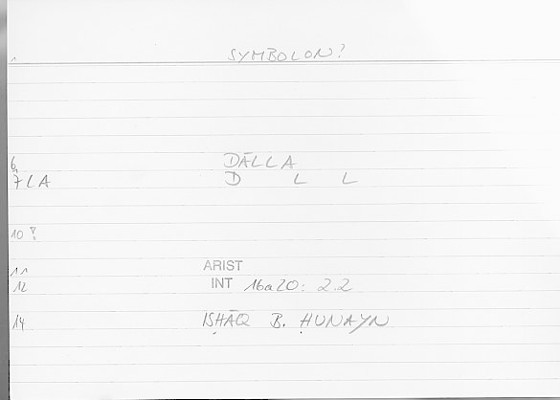 1 SYMBOLON?
6 DĀLLA
7 LA D L L
10 ?
11 ARIST
12 INT 16a20: 2.2
14 ISḤĀQ B. ḤUNAYN